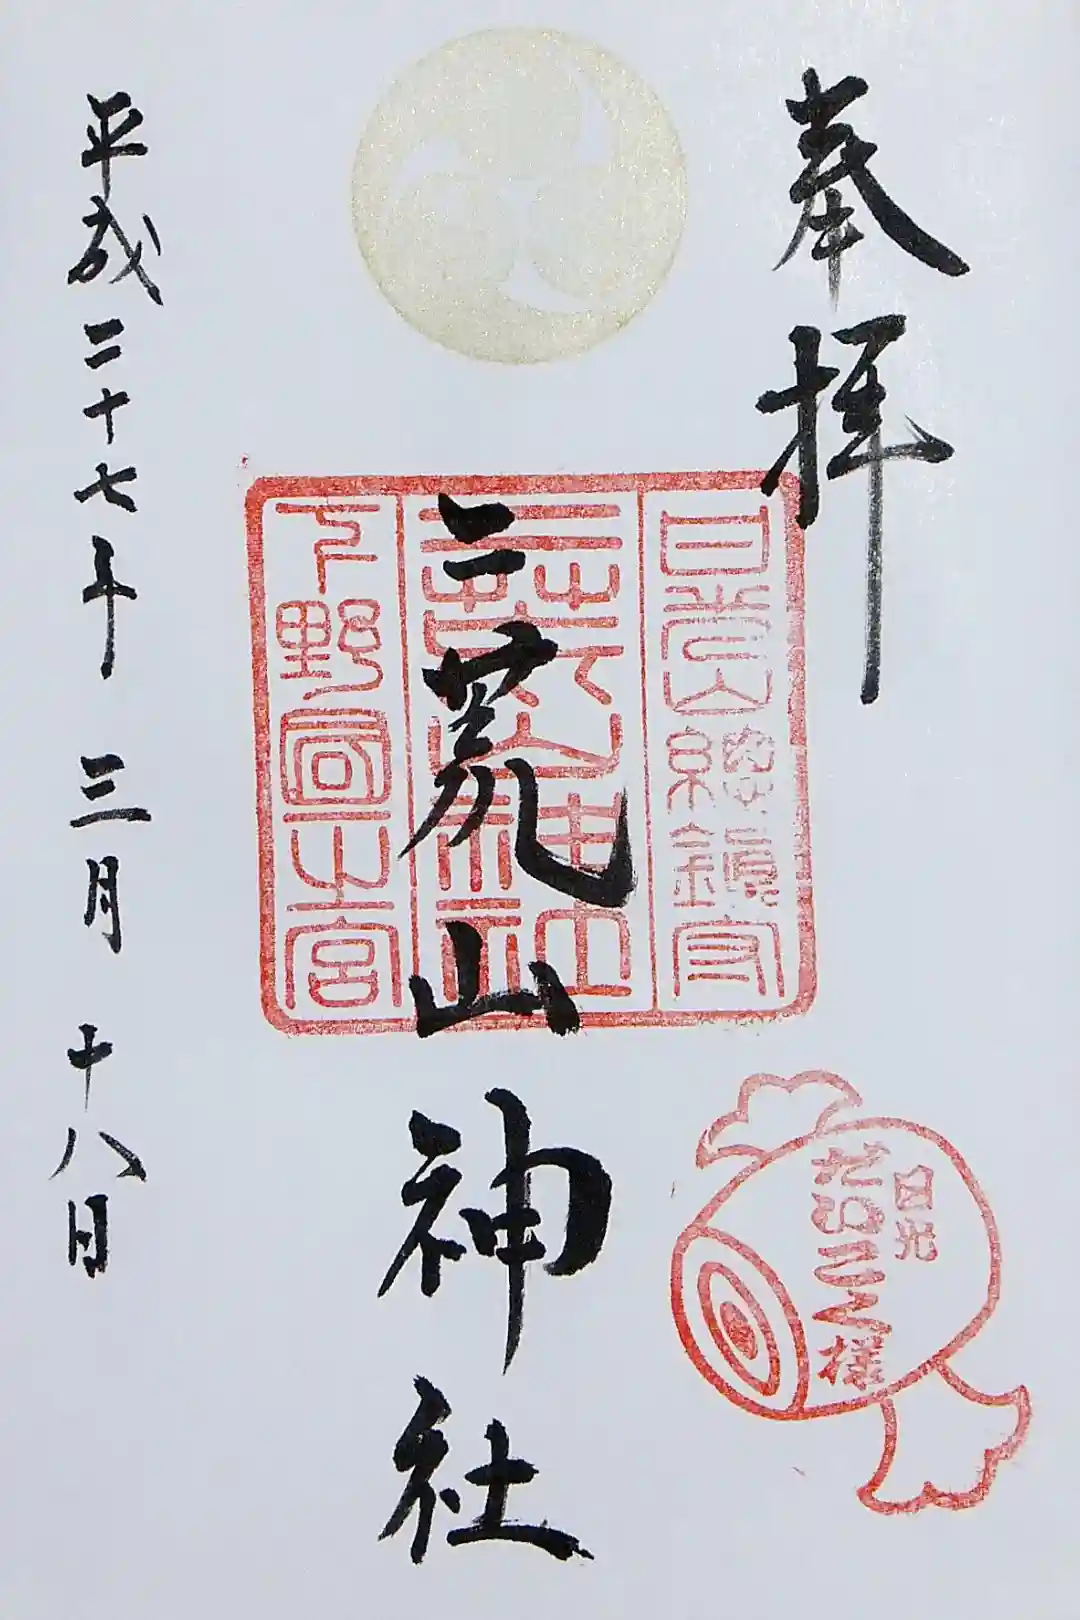 奉拝
日光山総鎮守
二荒山神社
下野国一之宮
二荒山神社
日光
だいこく様
平成二十七年 三月 十八日